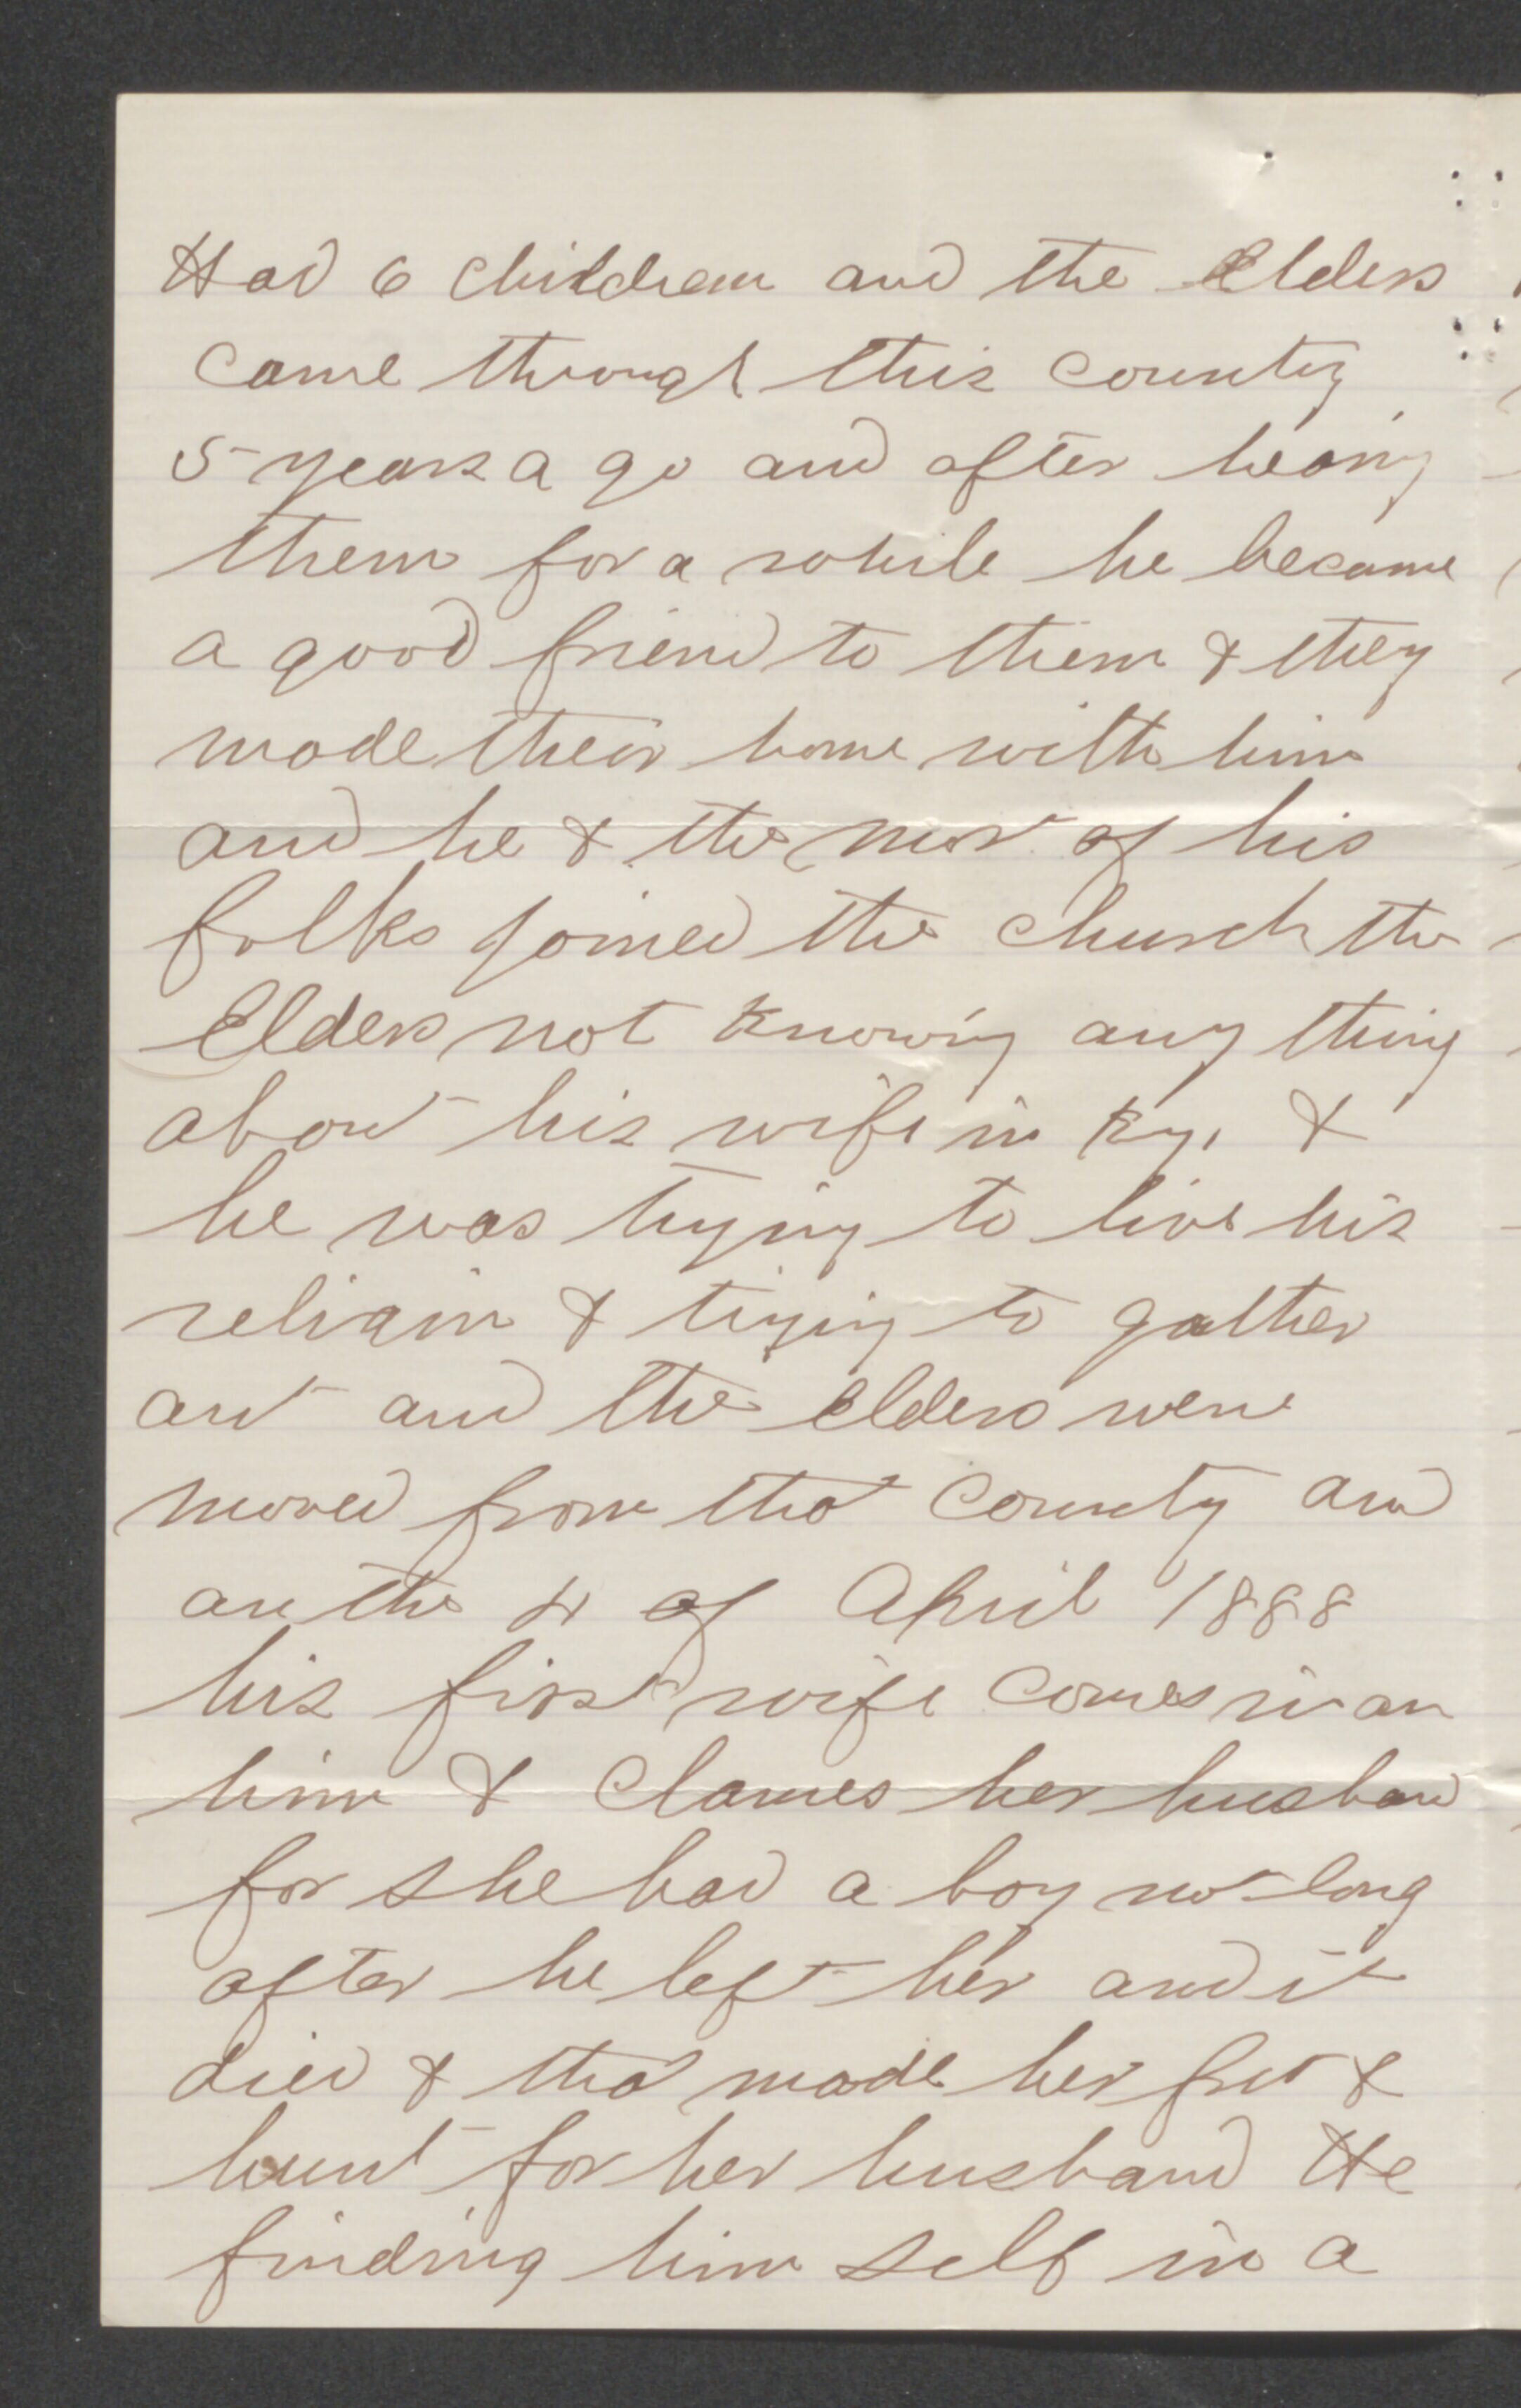 Had 6 children and the Elders
came through this county
5 years a go and after hearing
them for a while he became
a good friend to them & they
made their home with him
and he & the most of his
folks joined the church the
Elders not knowing any thing
about his wife in Ky. &
he was trying to live his
religion & trying to gather
out and the Elders were
moved from that County and
on the 4 of April 1888
his first wife comes in on
him & Clames her husband
for she had a boy not long
after he left her and it
died & that made her fret &
hunt for her husband He
finding him self in a